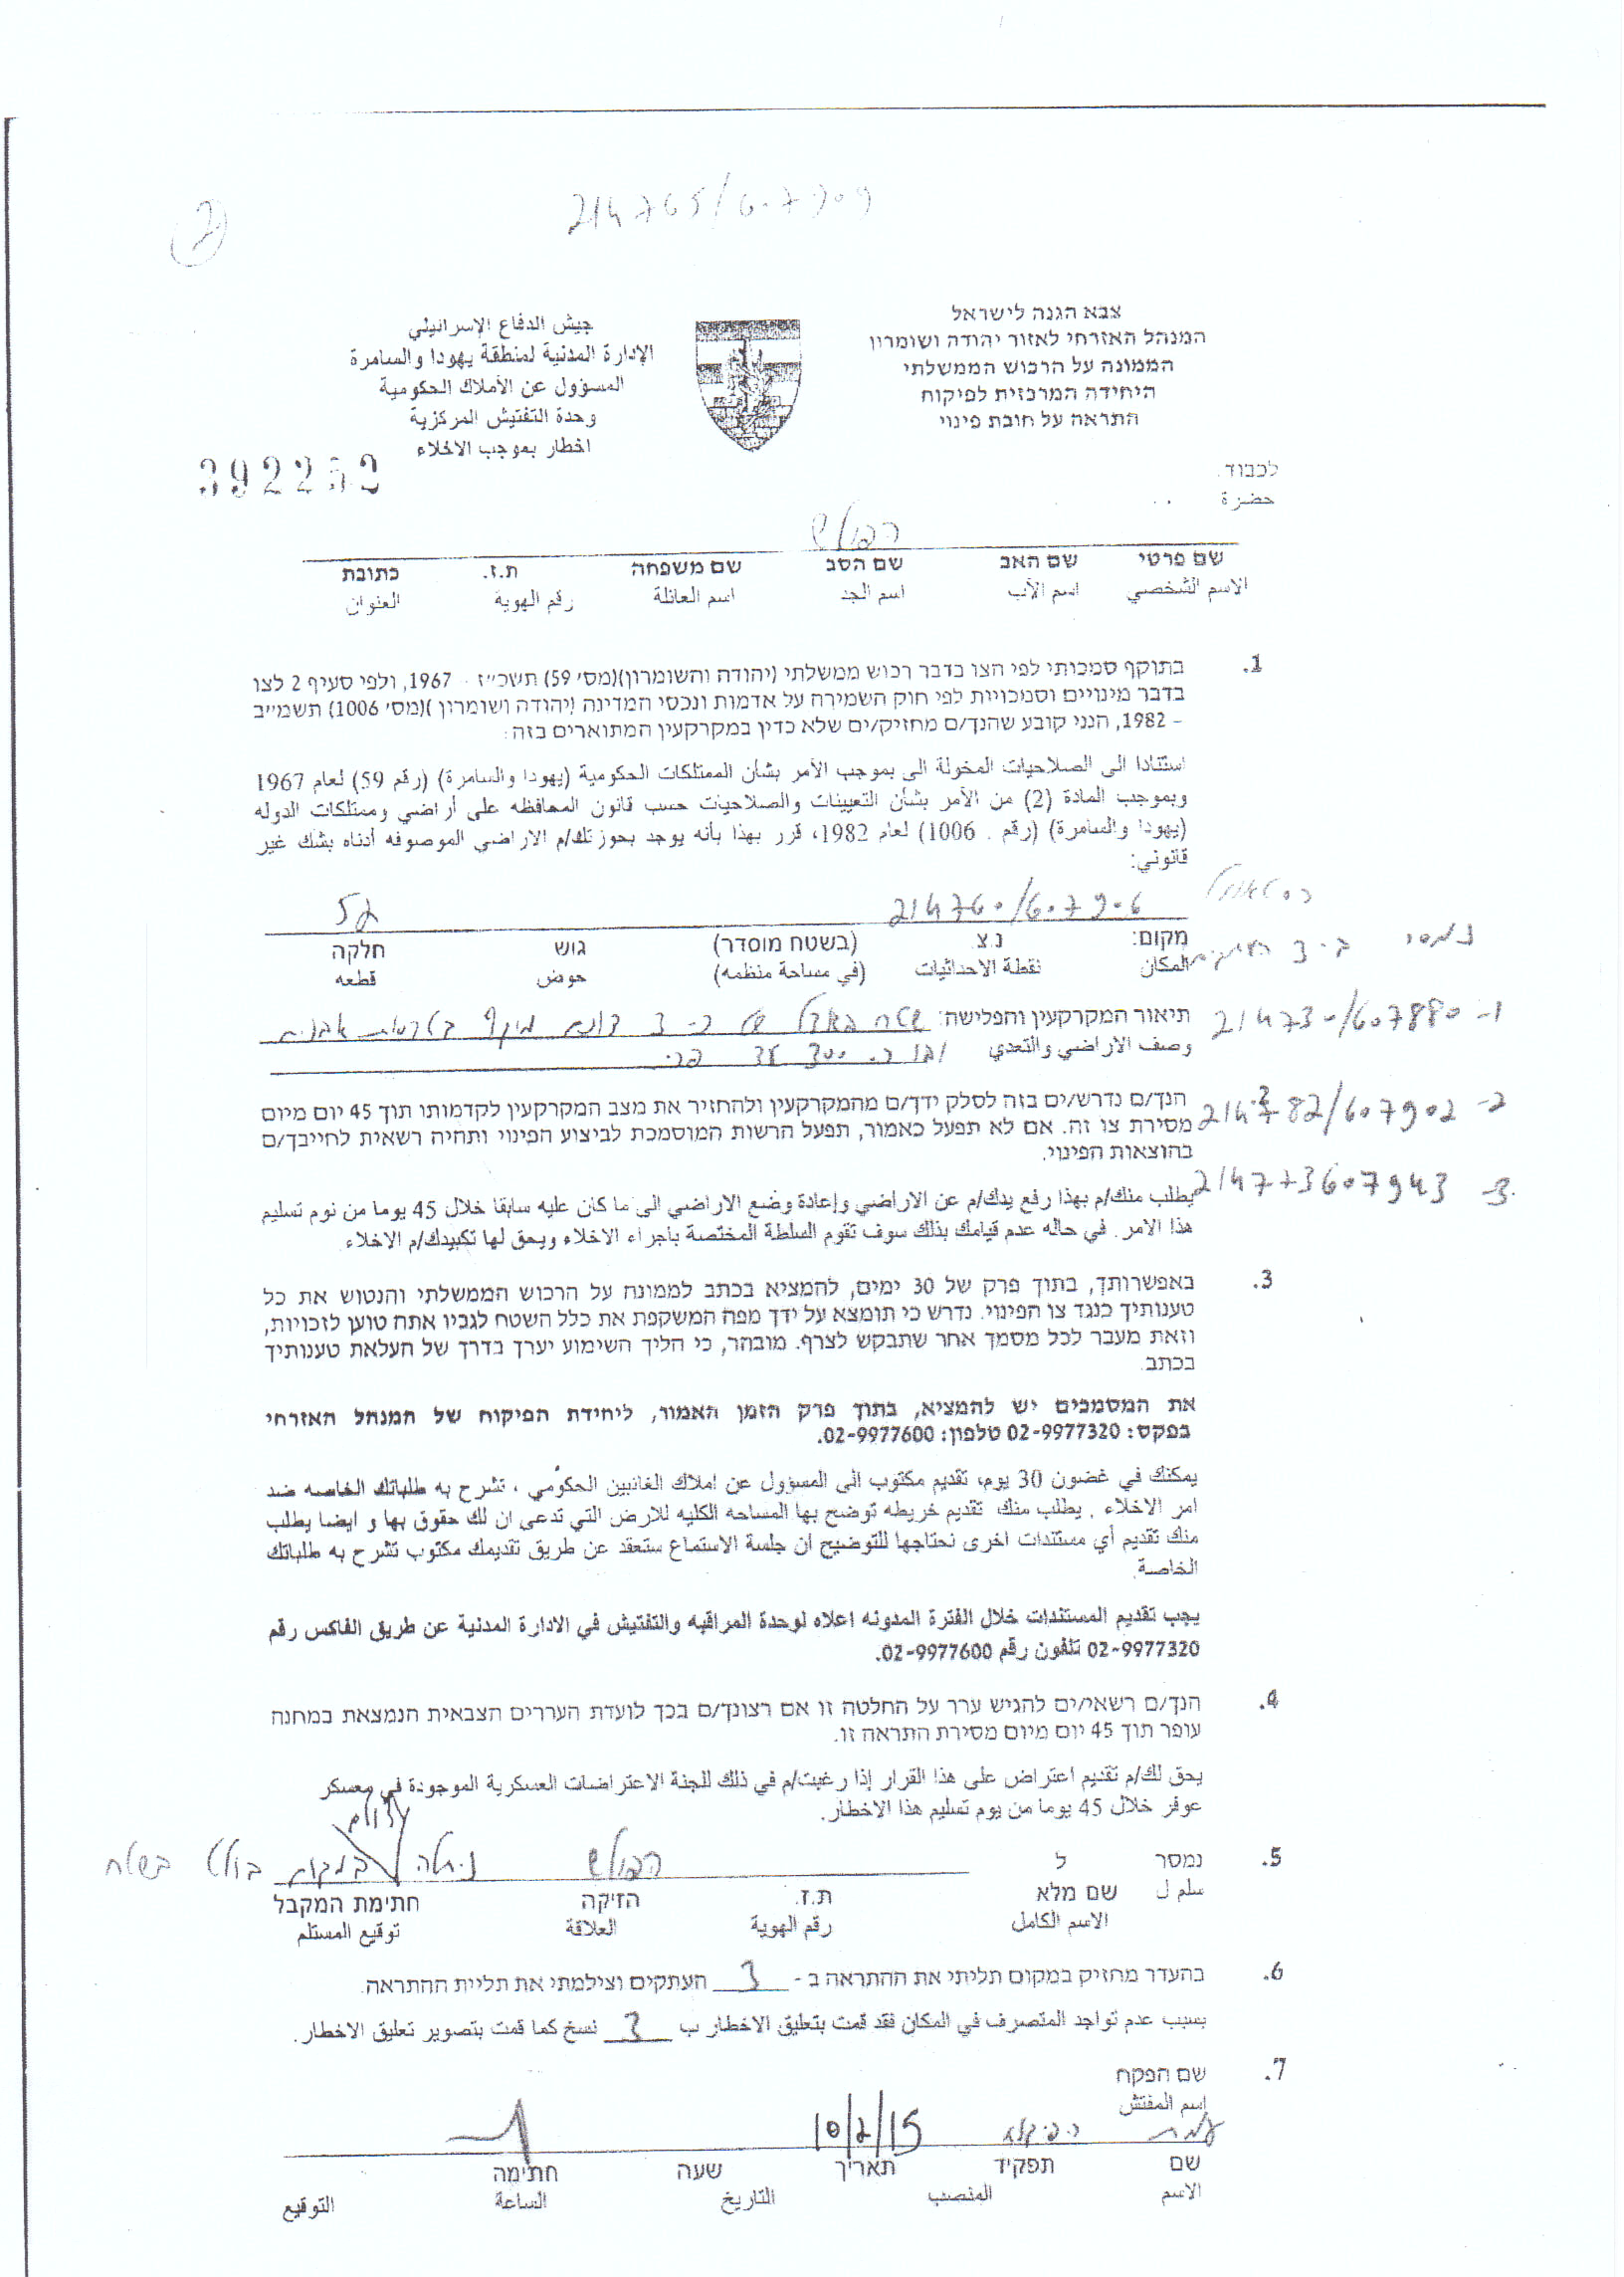 214765/607909
2
צבא הגנה לישראל
המנהל האזרחי לאזור יהודה ושומרון
הממונה על הרכוש הממשלתי
היחידה המרכזית לפיקוח
התראה על חובת פינוי
جيش الدفاع الإسرائيلي
الإدارة المدنية لمنطقة يهودا والسامرة
المسؤول عن الأملاك الحكومية
وحدة التفتيش المركزية
اخطار بموجب الاخلاء
לכבוד
حضرة
הפולש
שם פרטי שם האב שם הסב שם משפחה ת.ז. כתובת
الاسم الشخصي اسم الأب اسم الجد اسم العائلة رقم الهوية العنوان
1. בתוקף סמכותי לפי הצו בדבר רכוש ממשלתי (יהודה והשומרון)(מס׳ 59) תשכ״ז - 1967, ולפי סעיף 2 לצו
בדבר מינויים וסמכויות לפי חוק השמירה על אדמות ונכסי המדינה (יהודה ושומרון )(מס׳ 1006) תשמ״ב
– 1982, הנני קובע שהנך/ם מחזיק/ים שלא כדין במקרקעין המתוארים בזה:
استنادا الى الصلاحيات المخولة الى بموجب الأمر بشأن الممتلكات الحكومية (يهودا والسامرة) (رقم 59) لعام 1967
وبموجب المادة (2) من الأمر بشأن التعيينات والصلاحيات حسب قانون المحافظه على أراضي وممتلكات الدوله
(يهودا والسامرة) (رقم . 1006) لعام 1982، قرر بهذا بأنه يوجد بحوزتك/م الاراضي الموصوفه أدناه بشك غير
قانوني:
214760/607906
מקום: נ.צ. (בשטח מוסדר) גוש חלקה
المكان نقطة الاحداثيات (في مساحة منظمه) حوض قطعه
תיאור המקרקעין והפלישה: שטח בגודל של כ- 3 דונם מוקף בטרסות אבנים
وصف الاراضي والتعدي ובו כ- 300 עצי
214730/607880 -1
214782/607902 -2
2147 3607943 -3
הנך/ם נדרש/ים בזה לסלק ידך/ם מהמקרקעין ולהחזיר את מצב המקרקעין לקדמותו תוך 45 יום מיום
מסירת צו זה. אם לא תפעל כאמור, תפעל הרשות המוסמכת לביצוע הפינוי ותהיה רשאית לחייבך/ם
בהוצאות הפינוי.
يطلب منك/م بهذا رفع يدك/م عن الاراضي وإعادة وضع الاراضي الى ما كان عليه سابقا خلال 45 يوما من نوم تسليم
هذا الامر. في حاله عدم قيامك بذلك سوف تقوم السلطة المختصة باجراء الاخلاء ويحق لها تكبيدك/م الاخلاء
3. באפשרותך, בתוך פרק של 30 ימים, להמציא בכתב לממונה על הרכוש הממשלתי והנטוש את כל
טענותיך כנגד צו הפינוי. נדרש כי תומצא על ידך מפה המשקפת את כלל השטח לגביו אתה טוען לזכויות,
וזאת מעבר לכל מסמך אחר שתבקש לצרף. מובהר, כי הליך השימוע יערך בדרך של העלאת טענותיך
בכתב.
את המסמכים יש להמציא, בתוך פרק הזמן האמור, ליחידת הפיקוח של המנהל האזרחי
בפקס: 02-9977320 טלפון: 02-9977600.
يمكنك في غضون 30 يوم، تقديم مكتوب الى المسؤول عن املاك الغائبين الحكومي ، تشرح به طلباتك الخاصه ضد
امر الاخلاء . يطلب منك تقديم خريطه توضح بها المساحه الكليه للارض التي تدعى ان لك حقوق بها و ايضا يطلب
منك تقديم أي مستندات اخرى نحتاجها للتوضيح ان جلسة الاستماع ستعقد عن طريق تقديمك مكتوب تشرح به طلباتك
الخاصة
يجب تقديم المستندات خلال الفترة المدونه اعلاه لوحدة المراقبه والتفتيش في الادارة المدنية عن طريق الفاكس رقم
02-9977320 تلفون رقم 02-9977600.
4. הנך/ם רשאי/ים להגיש ערר על החלטה זו אם רצונך/ם בכך לועדת העררים הצבאית הנמצאת במחנה
עופר תוך 45 יום מיום מסירת התראה זו.
يحق لك/م تقديم اعتراض على هذا القرار إذا رغبت/م في ذلك للجنة الاعتراضات العسكرية الموجودة في معسكر
عوفر خلال 45 يوما من يوم تسليم هذا الاخطار.
5. נמסר ל הפולש בולט בשטח
سلم ל שם מלא ת.ז. הזיקה חתימת המקבל
الاسم الكامل رقم الهوية العلاقة توقيع المستلم
6. בהעדר מחזיק במקום תליתי את ההתראה ב - 3 העתקים וצילמתי את תליית ההתראה.
بسبب عدم تواجد المتصرف في المكان فقد قمت بتعليق الاخطار ب 3 نسخ كما قمت بتصوير تعليق الاخطار.
7. שם הפקח
إسم المفتش
10/2/15
שם תפקיד תאריך שעה חתימה
الاسم المنصب التاريخ الساعة التوقيع